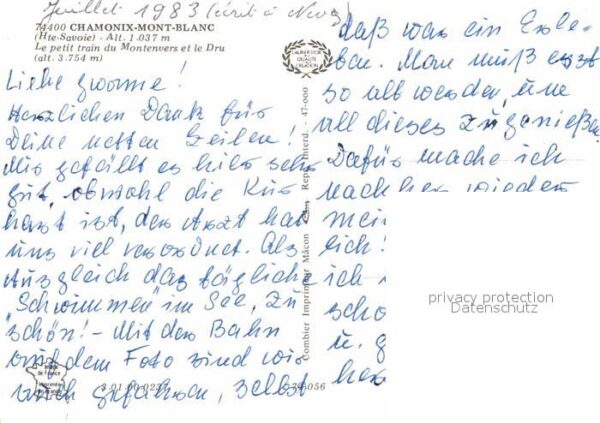 Juillet 1983 (écrit à
74400 CHAMONIX-MONT-BLANC
(Hte-Savoie) - Alt. 1 037 m
Le petit train du Montenvers et le Dru
(alt. 3.754 m)
Liebe Yvonne!
Herzlichen Dank für
Deine netten Zeilen!
Mir gefällt es hier sehr
gut, obwohl die Kur
hart ist, der Arzt hat
uns viel verordnet. Als
Ausgleich das tägliche
"Schwimmen" im See, zu
schön! - Mit der Bahn
auf dem Foto sind wir
auch gefahren, selbst
LABEL D'OR
QUALITÉ
CRÉATION
Combier Imprimeur Mâcon
Repr. interd. - 47-000
daß war ein Erle-
ben. Man muß erst
so alt werden, um
all dieses zu genießen.
Dafür mache ich
nachher wieder
mei
lich!
ich
scho
u. g
her
privacy protection
Datenschutz